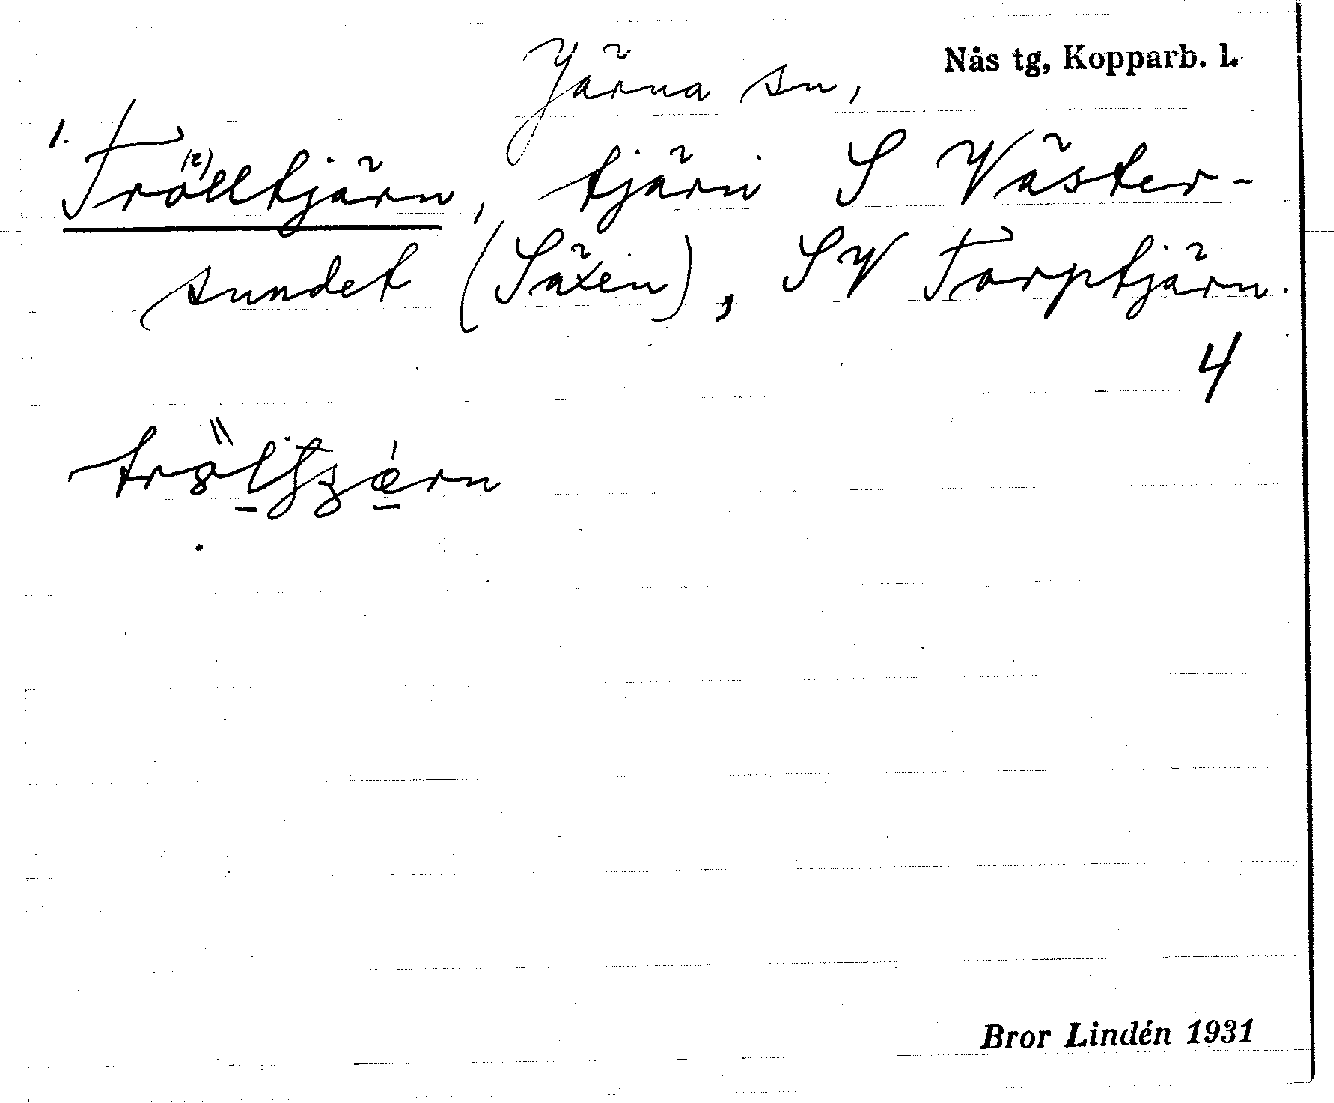 Järna sn, Nås tg, Kopparb. l.
1. Trölltjärn, tjärn S Väster-
sundet (Säxen), SV Torptjärn.
4
Bror Lindén 1931